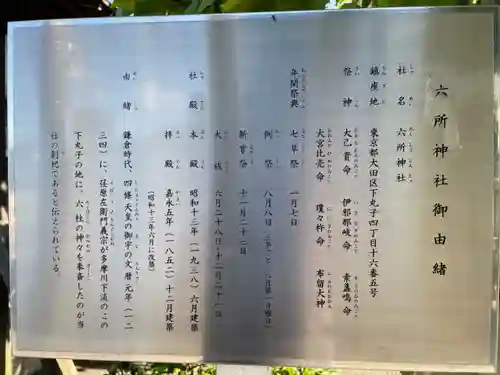 六所神社御由緒
社名 六所神社
鎮座地 東京都大田区下丸子四丁目十六番五号
祭神 大己貴命 伊邪那岐命 素盞嗚命
大宮比売命 瓊々杵命 布留大神
年間祭典 七草祭 一月七日
例祭 八月八日
新嘗祭 十一月二十三日
大祓 六月二十八日 十二月三十一日
社殿 本殿 昭和十三年(一九三八)六月建築
拝殿 嘉永五年(一八五二)十二月建築
(昭和十三年六月に改築)
由緒 鎌倉時代、四條天皇の御宇の文暦元年(一二
三四)に、荏原左衛門義宗が多摩川下流のこの
下丸子の地に、六柱の神々を奉斎したのが当
社の創祀であると伝えられている。